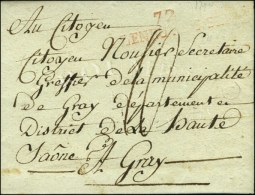 Au Citoyen
77
Citoyen Noufies Secretaire
Greffier de la municipalité
de Gray département en
District de la haute
Saône A Gray